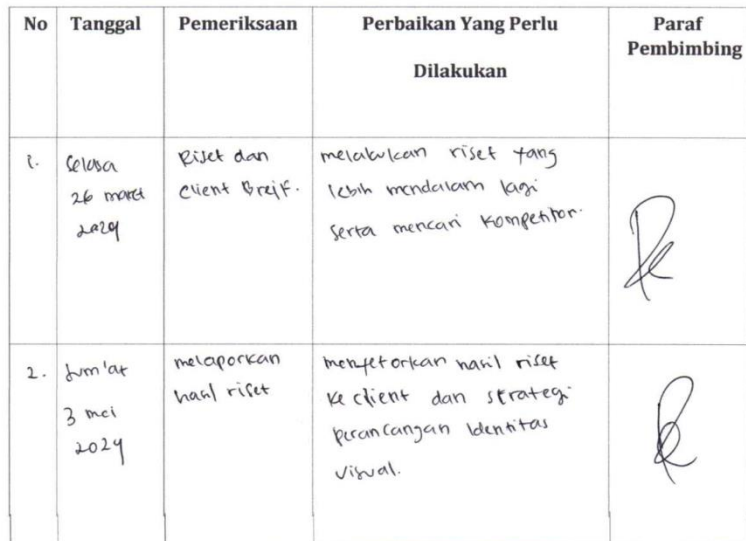 No Tanggal Pemeriksaan Perbaikan Yang Perlu Dilakukan Paraf Pembimbing
1. Selasa
26 maret
2024
Riset dan
Client Breif.
melakukan riset yang
lebih mendalam lagi
serta mencari kompetitor.
2. Jum'at
3 mei
2024
melaporkan
hasil riset
menyetorkan hasil riset
ke client dan strategi
perancangan identitas
visual.